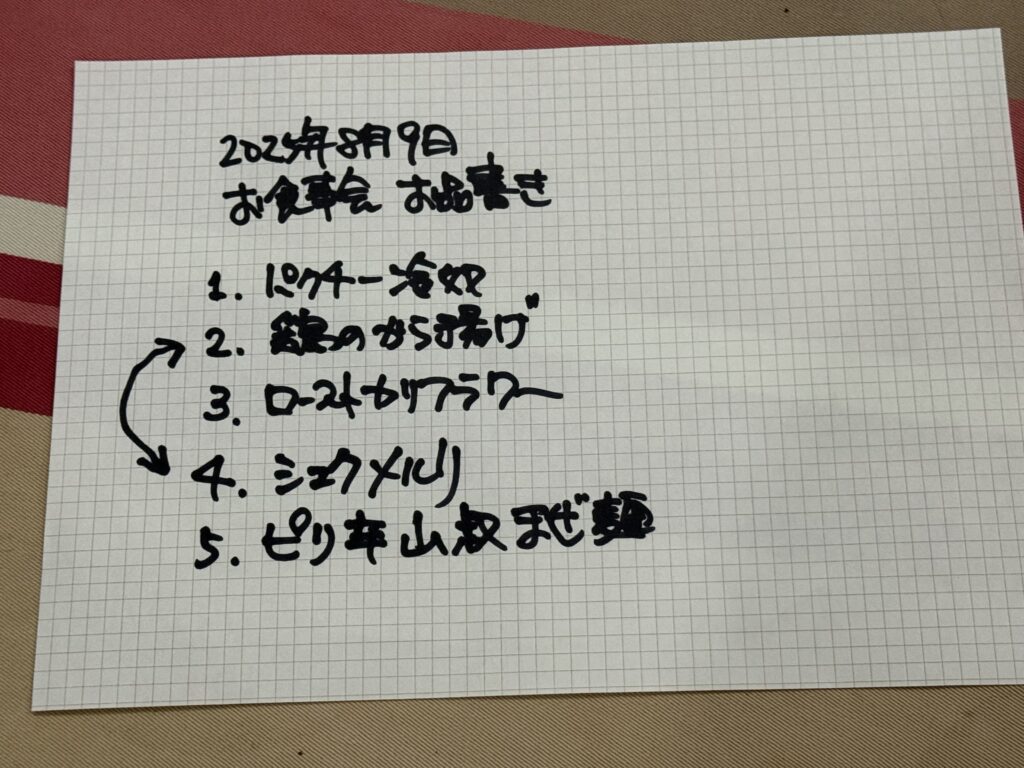 2025年8月9日
お食事会 お品書き
1. パクチー冷奴
2. 鶏のから揚げ
3. ローストカリフラワー
4. シュクメルリ
5. ピリ辛山椒まぜ麺